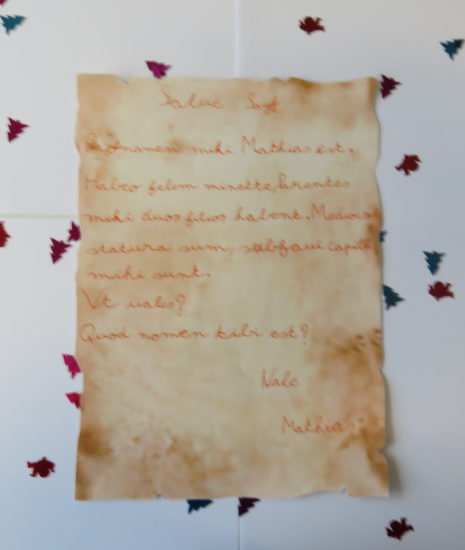 Salve
Praenomen mihi Mathias est.
Habeo felem minette, Parentes
mihi duos filios habent. Mediocri
statura sum, subflavi capilli
mihi sunt.
Vt vales?
Quod nomen tibi est?
Vale
Mathias